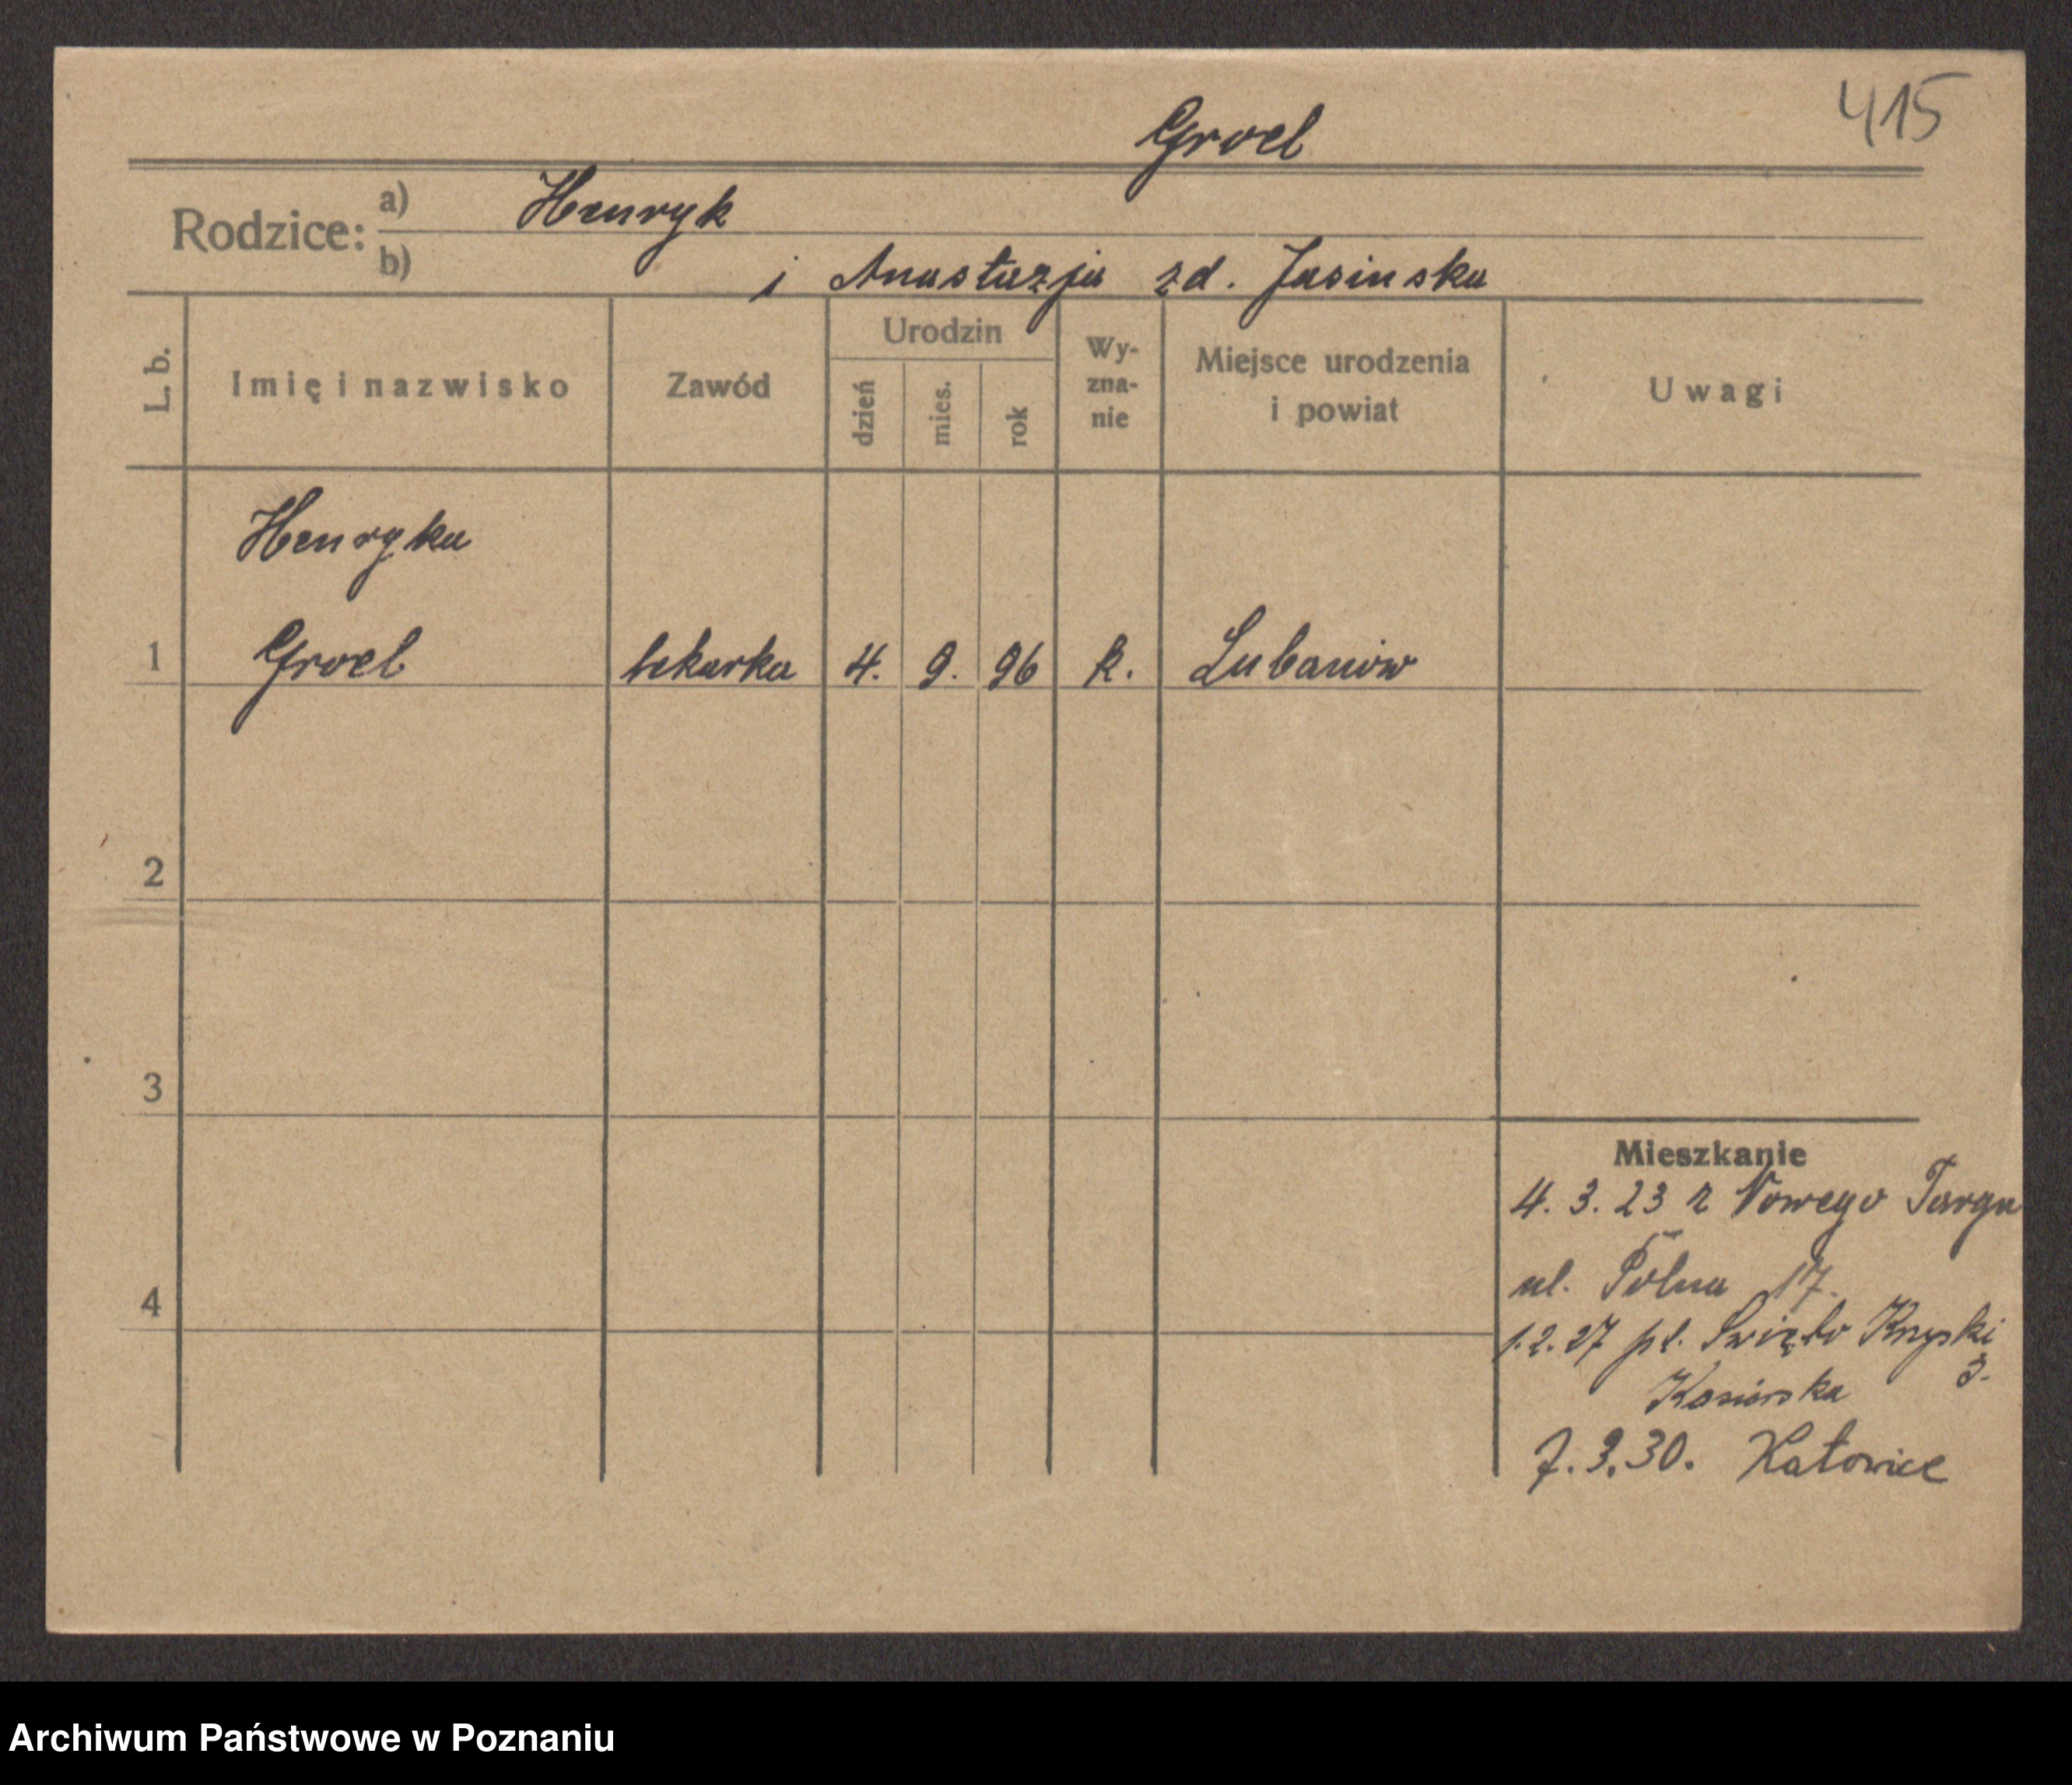 415
Groel
Rodzice: a) Henryk
b) i Anastazja zd. Jasinska
L. b.
Imię i nazwisko
Zawód
Urodzin
dzień
mies.
rok
Wy-
zna-
nie
Miejsce urodzenia
i powiat
Uwagi
Henryka
1 Groel lekarka 4. 9. 96 k. Lubanów
2
3
4
Mieszkanie
4. 3. 23 z Nowego Targu
ul. Polna 17.
1. 2. 27 pl. Święto Krzyski
3.
7. 3. 30. Katowice
Archiwum Państwowe w Poznaniu